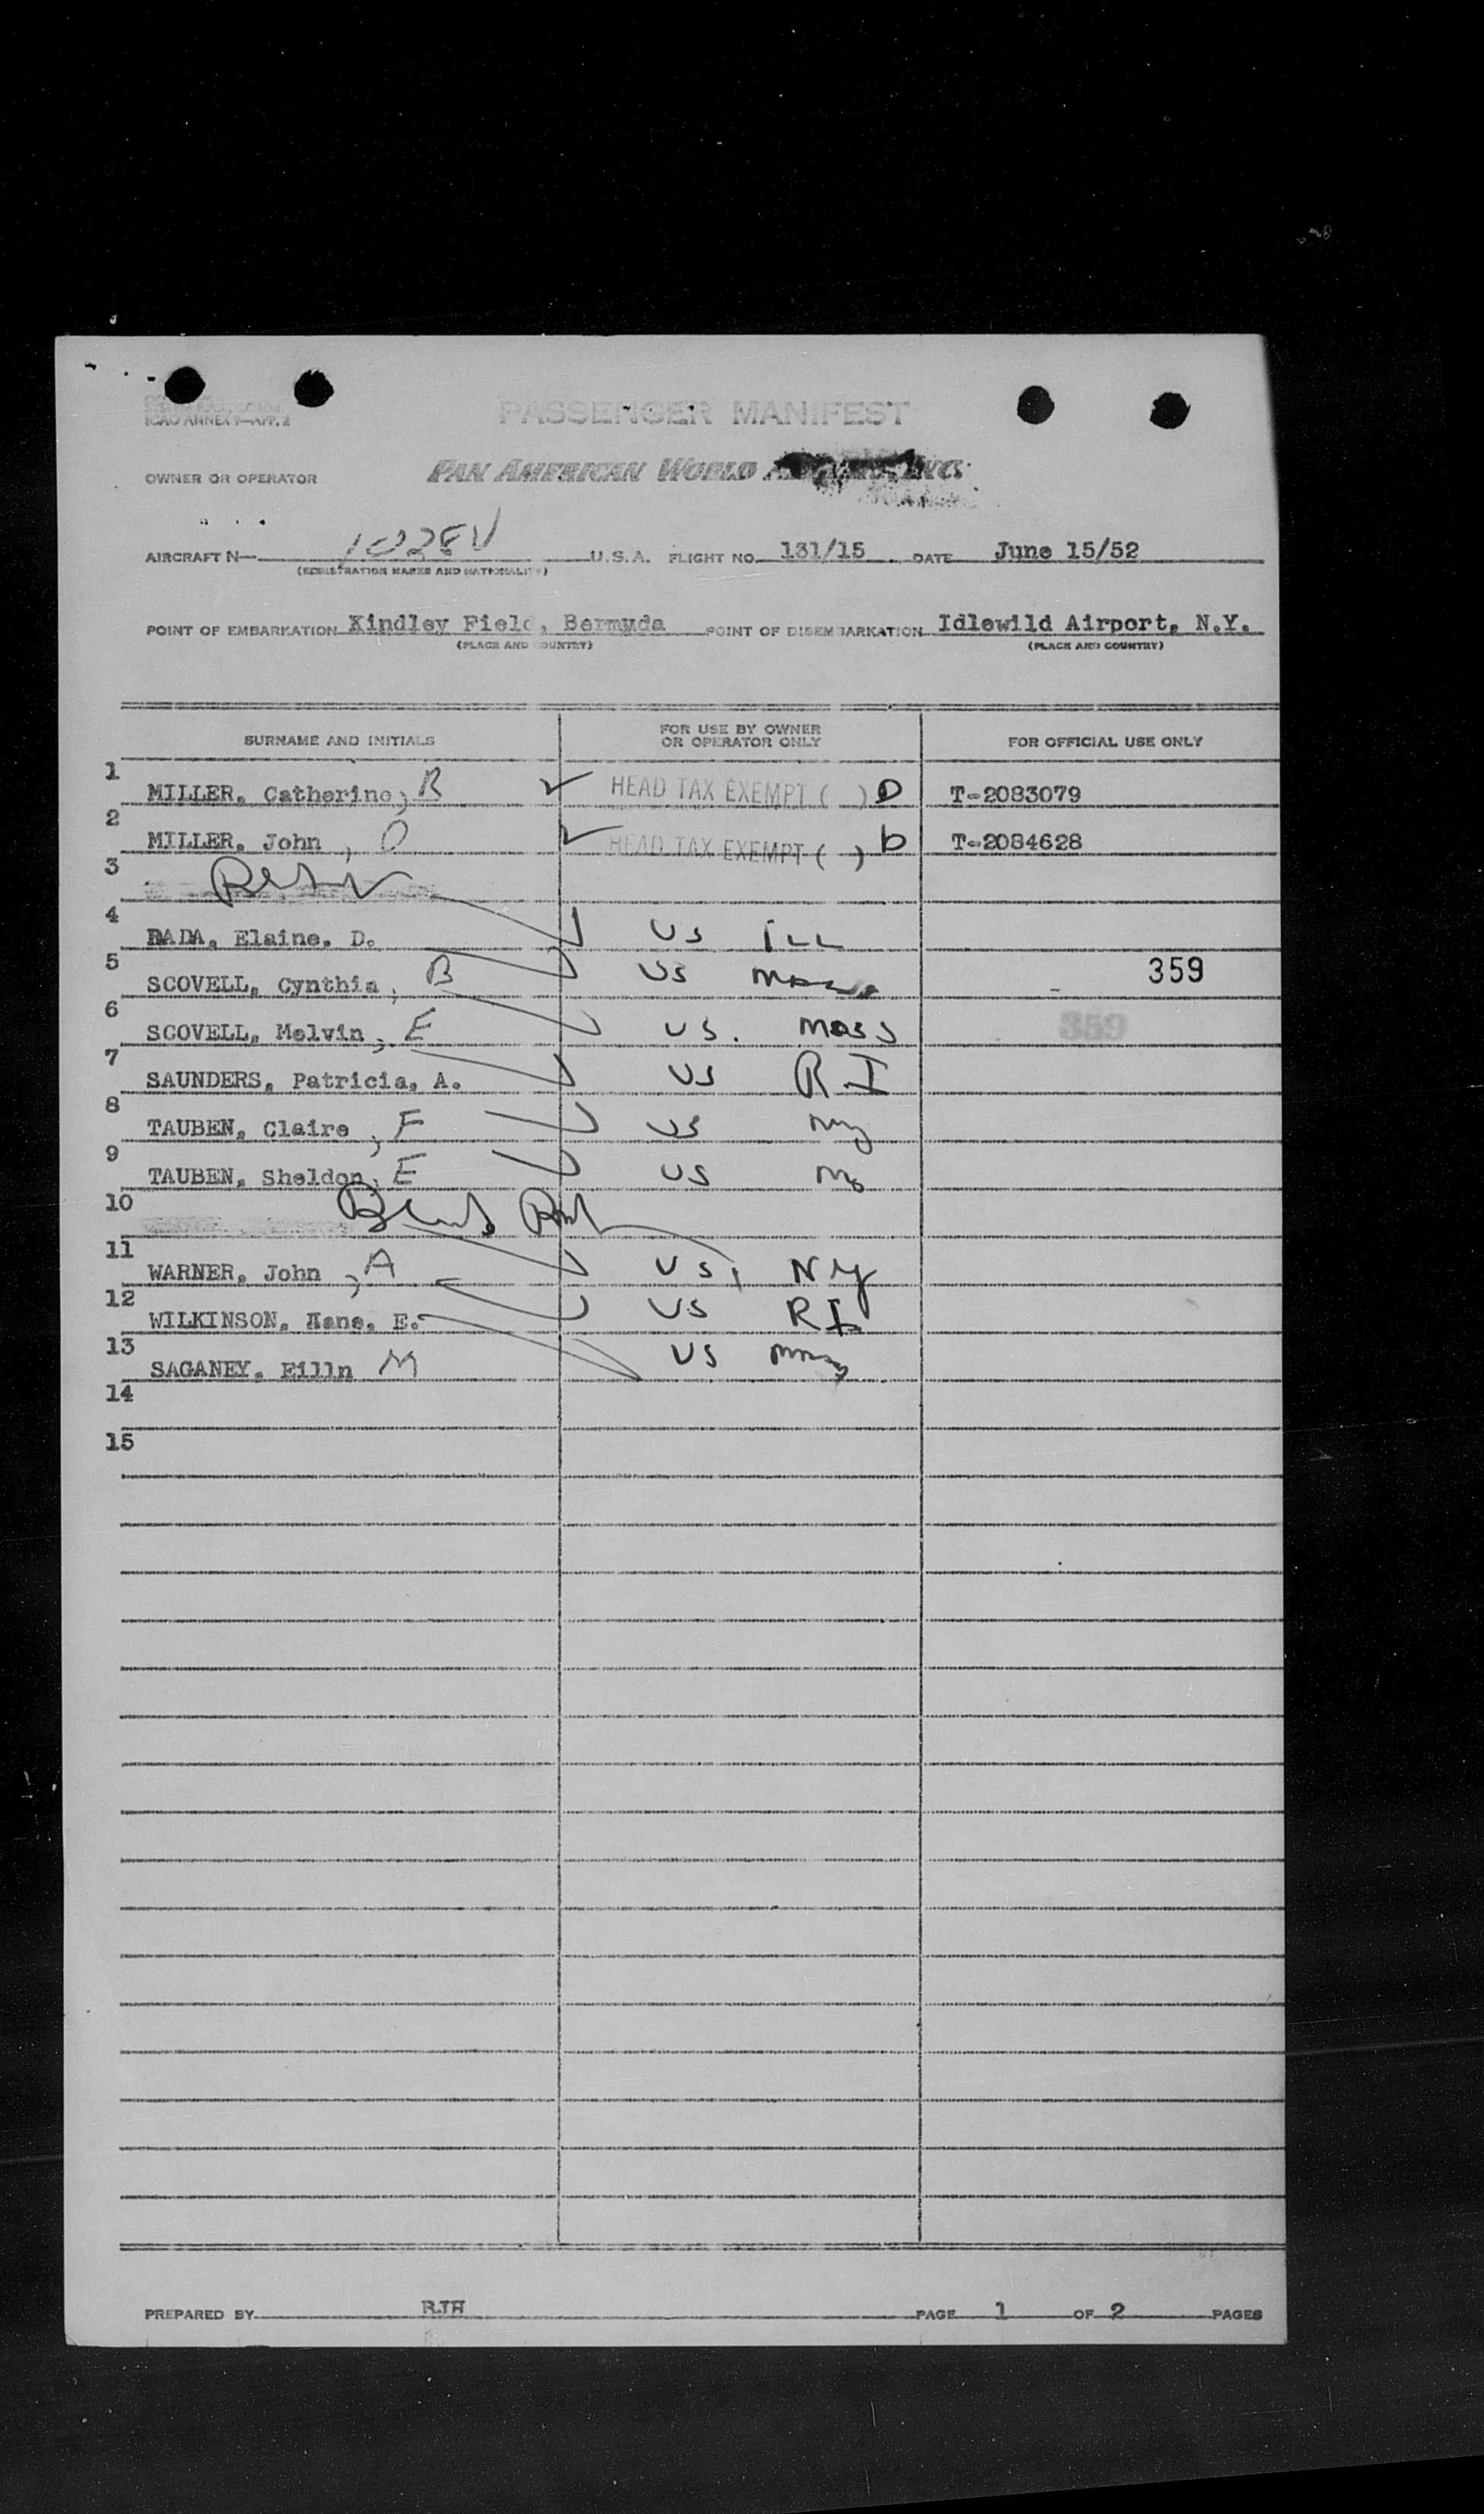 ICAO ANNEX 9—APP. 2
PASSENGER MANIFEST
OWNER OR OPERATOR PAN AMERICAN WORLD INC.
AIRCRAFT N— 1028V U.S.A. FLIGHT NO. 131/15 DATE June 15/52
(REGISTRATION MARKS AND NATIONALITY)
POINT OF EMBARKATION Kindley Field, Bermuda POINT OF DISEMBARKATION Idlewild Airport, N.Y.
(PLACE AND COUNTRY) (PLACE AND COUNTRY)
SURNAME AND INITIALS FOR USE BY OWNER OR OPERATOR ONLY FOR OFFICIAL USE ONLY
1 MILLER, Catherine, R HEAD TAX EXEMPT ( ) D T-2083079
2 MILLER, John, O HEAD TAX EXEMPT ( ) D T-2084628
3
4 RADA, Elaine, D. US ILL
5 SCOVELL, Cynthia, B US Mass 359
6 SCOVELL, Melvin, E US. Mass 359
7 SAUNDERS, Patricia, A. US RI
8 TAUBEN, Claire, F US NY
9 TAUBEN, Sheldon, E US
10
11 WARNER, John, A US, NY
12 WILKINSON, E. US RI
13 SAGANEY, Eilln M US Mass
14
15
PREPARED BY RJH PAGE 1 OF 2 PAGES